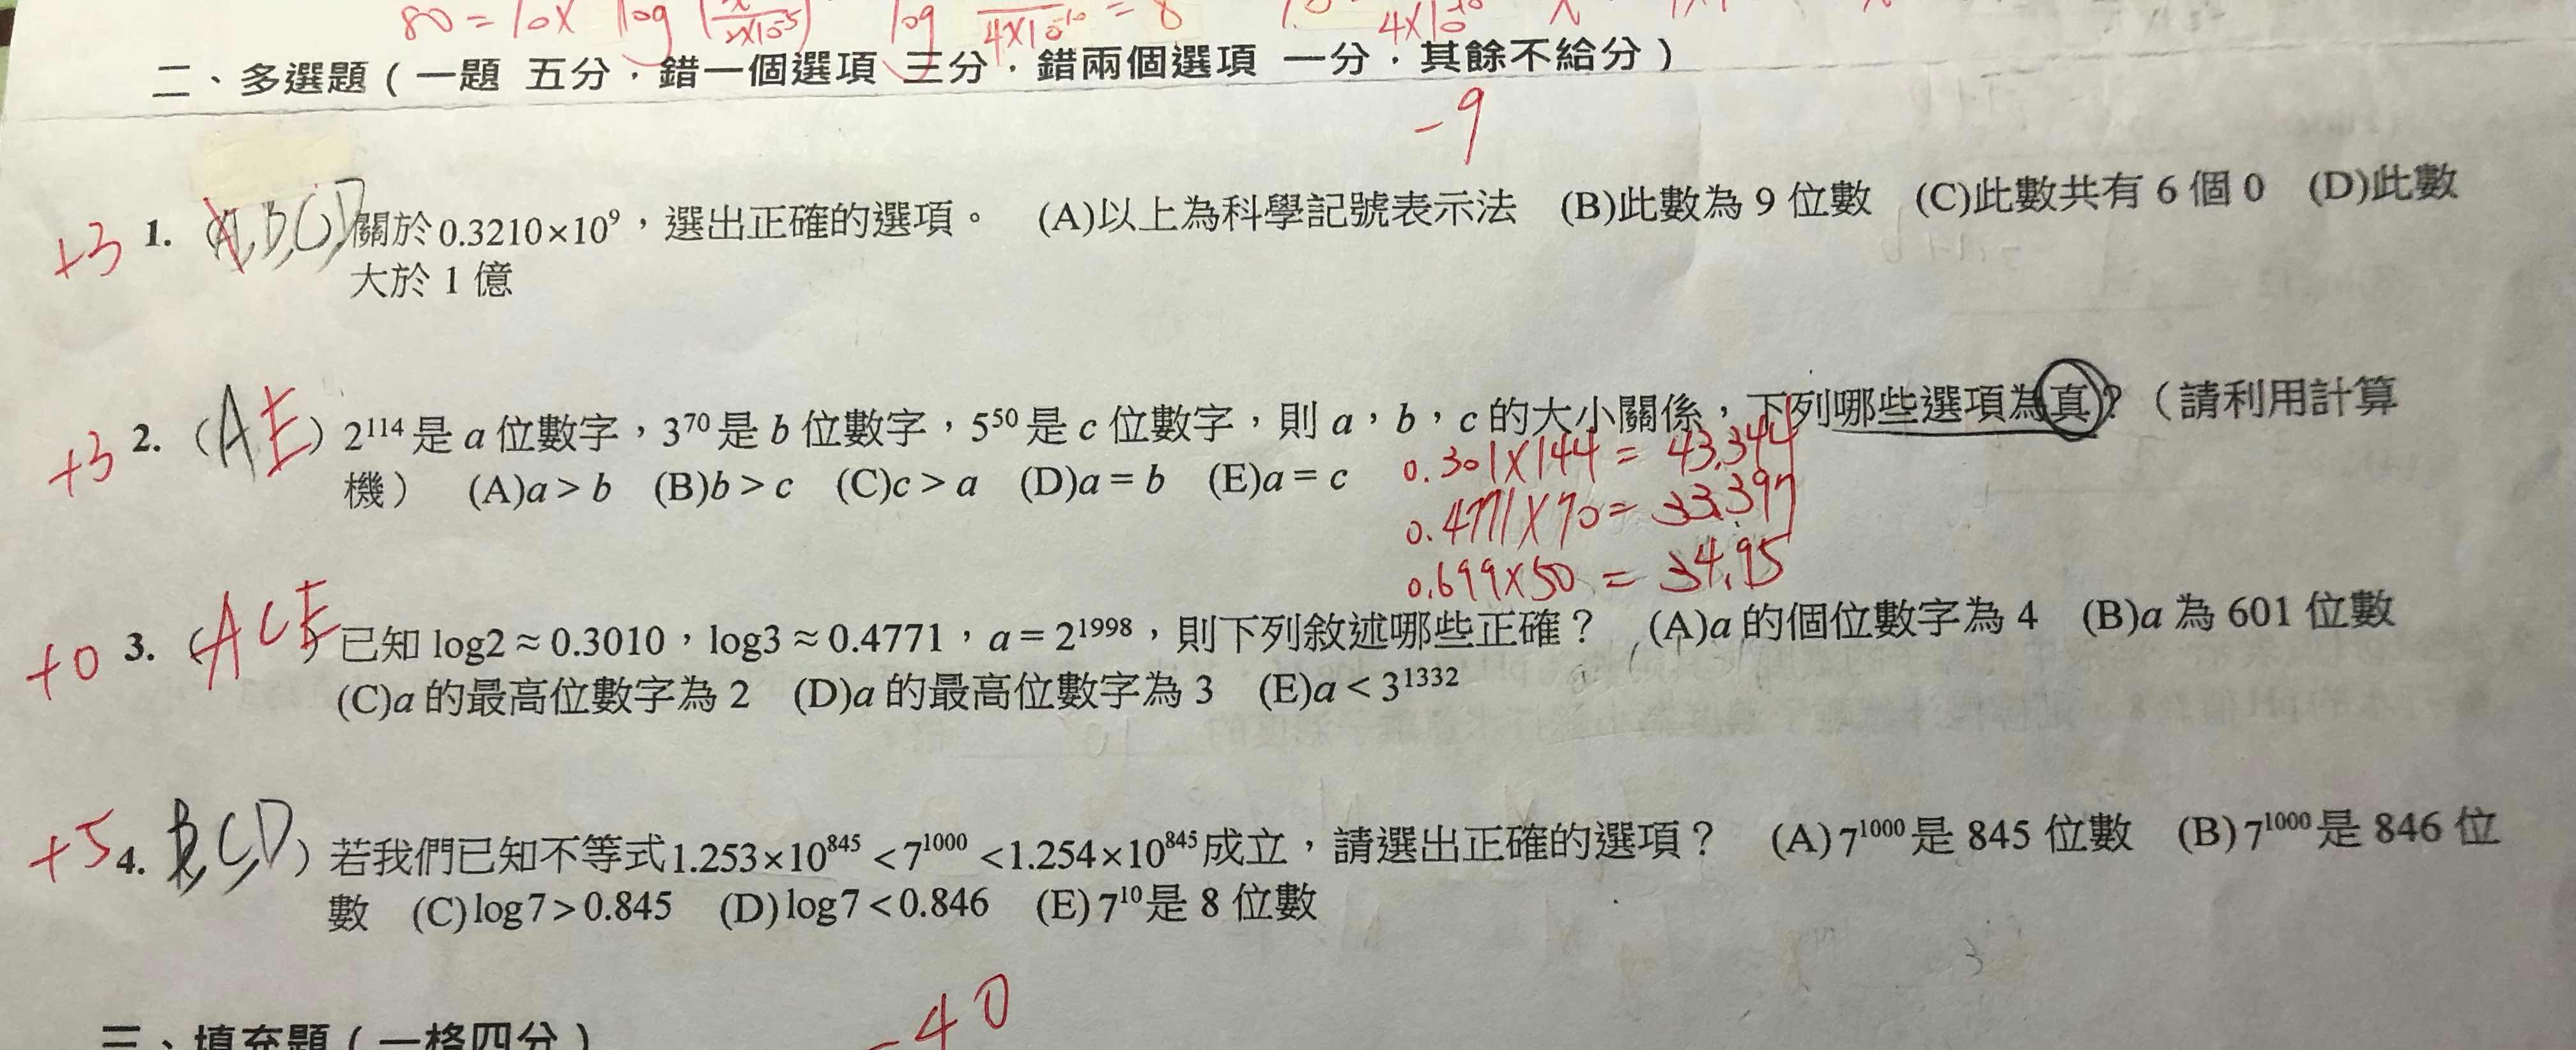 80 = 10 x log
二、多選題（一題 五分，錯一個選項 三分，錯兩個選項 一分，其餘不給分）
-9
+3 1. (A,B,C,D 關於0.3210×10⁹，選出正確的選項。 (A)以上為科學記號表示法 (B)此數為 9 位數 (C)此數共有 6 個 0 (D)此數
大於 1 億
+3 2. (AE) 2¹¹⁴是 a 位數字，3⁷⁰是 b 位數字，5⁵⁰是 c 位數字，則 a，b，c 的大小關係，下列哪些選項為真？（請利用計算
機） (A)a > b (B)b > c (C)c > a (D)a = b (E)a = c
0.301×144 = 43.344
0.4771×70 = 33.397
0.699×50 = 34.95
+0 3. (ACE) 已知 log2 ≈ 0.3010，log3 ≈ 0.4771，a = 2¹⁹⁹⁸，則下列敘述哪些正確？ (A)a 的個位數字為 4 (B)a 為 601 位數
(C)a 的最高位數字為 2 (D)a 的最高位數字為 3 (E)a < 3¹³³²
+5 4. B,C,D) 若我們已知不等式1.253×10⁸⁴⁵ < 7¹⁰⁰⁰ < 1.254×10⁸⁴⁵成立，請選出正確的選項？ (A) 7¹⁰⁰⁰是 845 位數 (B) 7¹⁰⁰⁰是 846 位
數 (C) log7 > 0.845 (D) log7 < 0.846 (E) 7¹⁰是 8 位數
-40
三、填充題（一格四分）